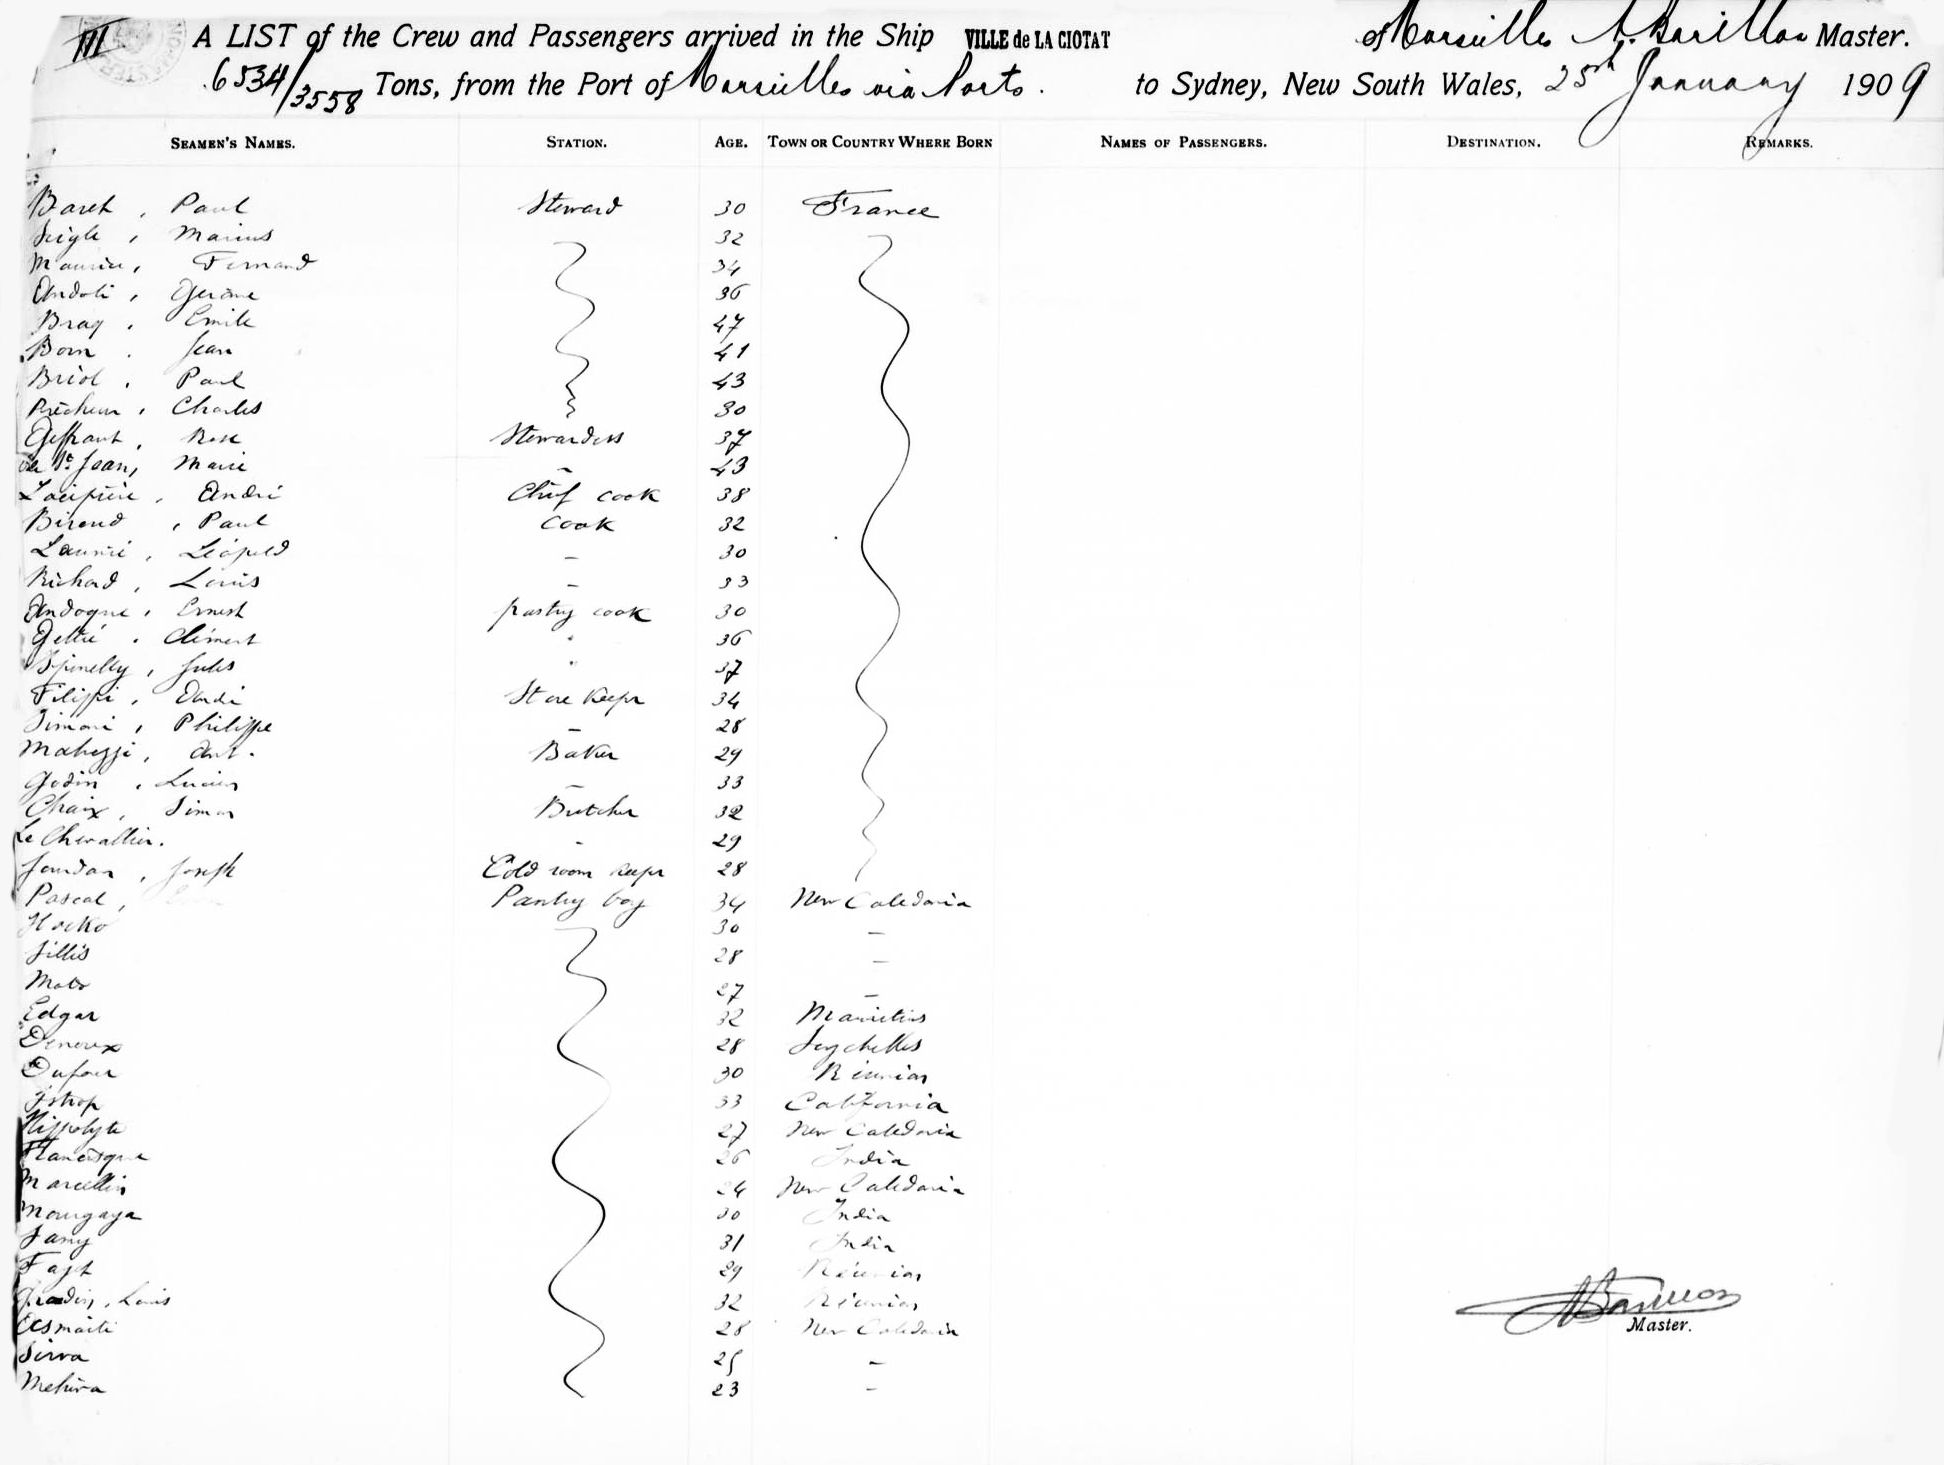 III
A LIST of the Crew and Passengers arrived in the Ship VILLE de LA CIOTAT of Marseilles A. Barillon Master.
6534/3558 Tons, from the Port of Marseilles via Ports. to Sydney, New South Wales, 25th January 1909
SEAMEN'S NAMES. STATION. AGE. TOWN OR COUNTRY WHERE BORN NAMES OF PASSENGERS. DESTINATION. REMARKS.
Baret, Paul Steward 30 France
Seigle, Marius 32
Maurice, Fernand 34
Andoli, Gerome 36
Braq. Emile 47
Born. Jean 41
Briol. Paul 43
Prêcheur, Charles 30
Geffrant, Rose Stewardess 37
de St Jean, Marie – 43
André Chief cook 38
Biroud, Paul cook 32
Laurié, Léopold – 30
Richard, Louis – 33
Andogue, Ernest pastry cook 30
Gettié. Clément " 36
Spinelly, Jules " 37
Filippi, André Store Keepr 34
Simoni, Philippe – 28
Mahezzi, Ant. Baker 29
Godin, Lucien – 33
Chaix, Simon Butcher 32
Le Chevallier. - 29
Jourdan, Joseph Cold room keepr 28
Pascal, Pantry boy 34 New Caledonia
Hocko 30 –
Sillis 28 –
Mato 27 –
Edgar 32 Mauritius
Denoux 28 Seychelles
Dufour 30 Réunion
33 California
Hippolyte 27 New Caledonia
Francisque 26 India
Marcellin 24 New Caledonia
Mourgaya 30 India
Samy 31 India
Fajt 29 Réunion
Gradin, Louis 32 Réunion
28 New Caledonia
Sirva 25 –
Mehiva 23 –
ABarillon
Master.